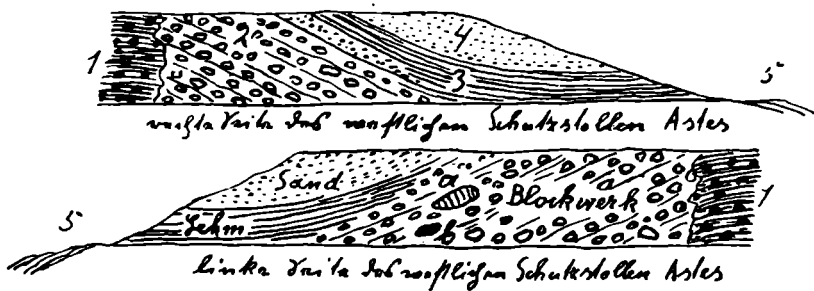 1 2 3 4 5
rechte Seite des westlichen Schutzstollen Astes
5 Sand a Blockwerk 1
Lehm b
linke Seite des westlichen Schutzstollen Astes